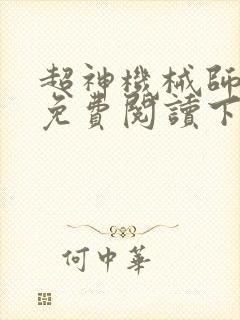 超神機械師
免費閱讀下
何中華